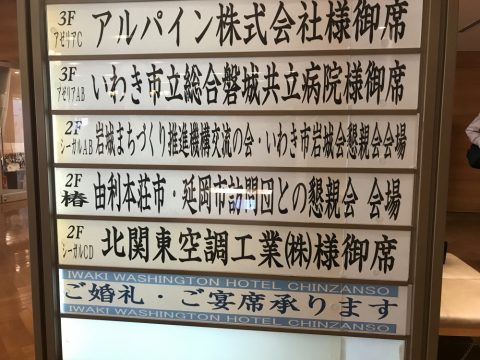 3F アゼリアC アルパイン株式会社様御席
3F アゼリアAB いわき市立総合磐城共立病院様御席
2F シーガルAB 岩城まちづくり推進機構交流の会・いわき市岩城会懇親会会場
2F 椿 由利本荘市・延岡市訪問団との懇親会 会場
2F シーガルCD 北関東空調工業㈱様御席
IWAKI WASHINGTON HOTEL CHINZANSO
ご婚礼・ご宴席承ります
IWAKI WASHINGTON HOTEL CHINZANSO